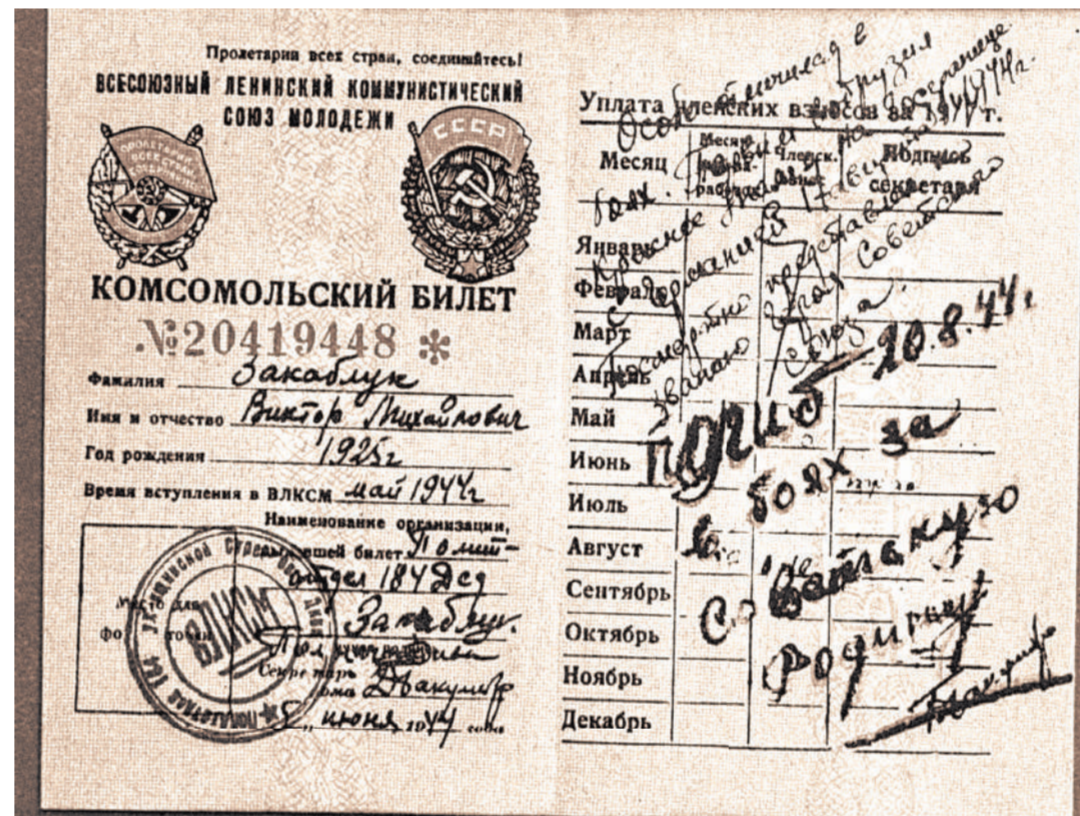 Пролетарии всех стран, соединяйтесь!
ВСЕСОЮЗНЫЙ ЛЕНИНСКИЙ КОММУНИСТИЧЕСКИЙ
СОЮЗ МОЛОДЕЖИ
ПРОЛЕТАРИИ ВСЕХ СТРАН
СССР
КОМСОМОЛЬСКИЙ БИЛЕТ
№20419448 *
Фамилия Закаблук
Имя и отчество Виктор Михайлович
Год рождения 1925г
Время вступления в ВЛКСМ май 1944г
Наименование организации,
выдавшей билет Полит-
отдел 184 Дсд
Место для
фо точки
Закаблук.
Секретарь
ВЛКСМ
5 „ июня 1944 года
Уплата членских взносов за 1944 г.
Месяц
Месячн.
Членск.
взнос
Подпись
секретаря
Январь
Февраль
Март
Апрель
Май
Июнь
Июль
Август
Сентябрь
Октябрь
Ноябрь
Декабрь
в
боях
на границе
с Германией 17 августа 1944г.
Посмертно представлен к
званию Героя Советского
Союза.
Погиб 20.8.44г.
в боях за
Родину